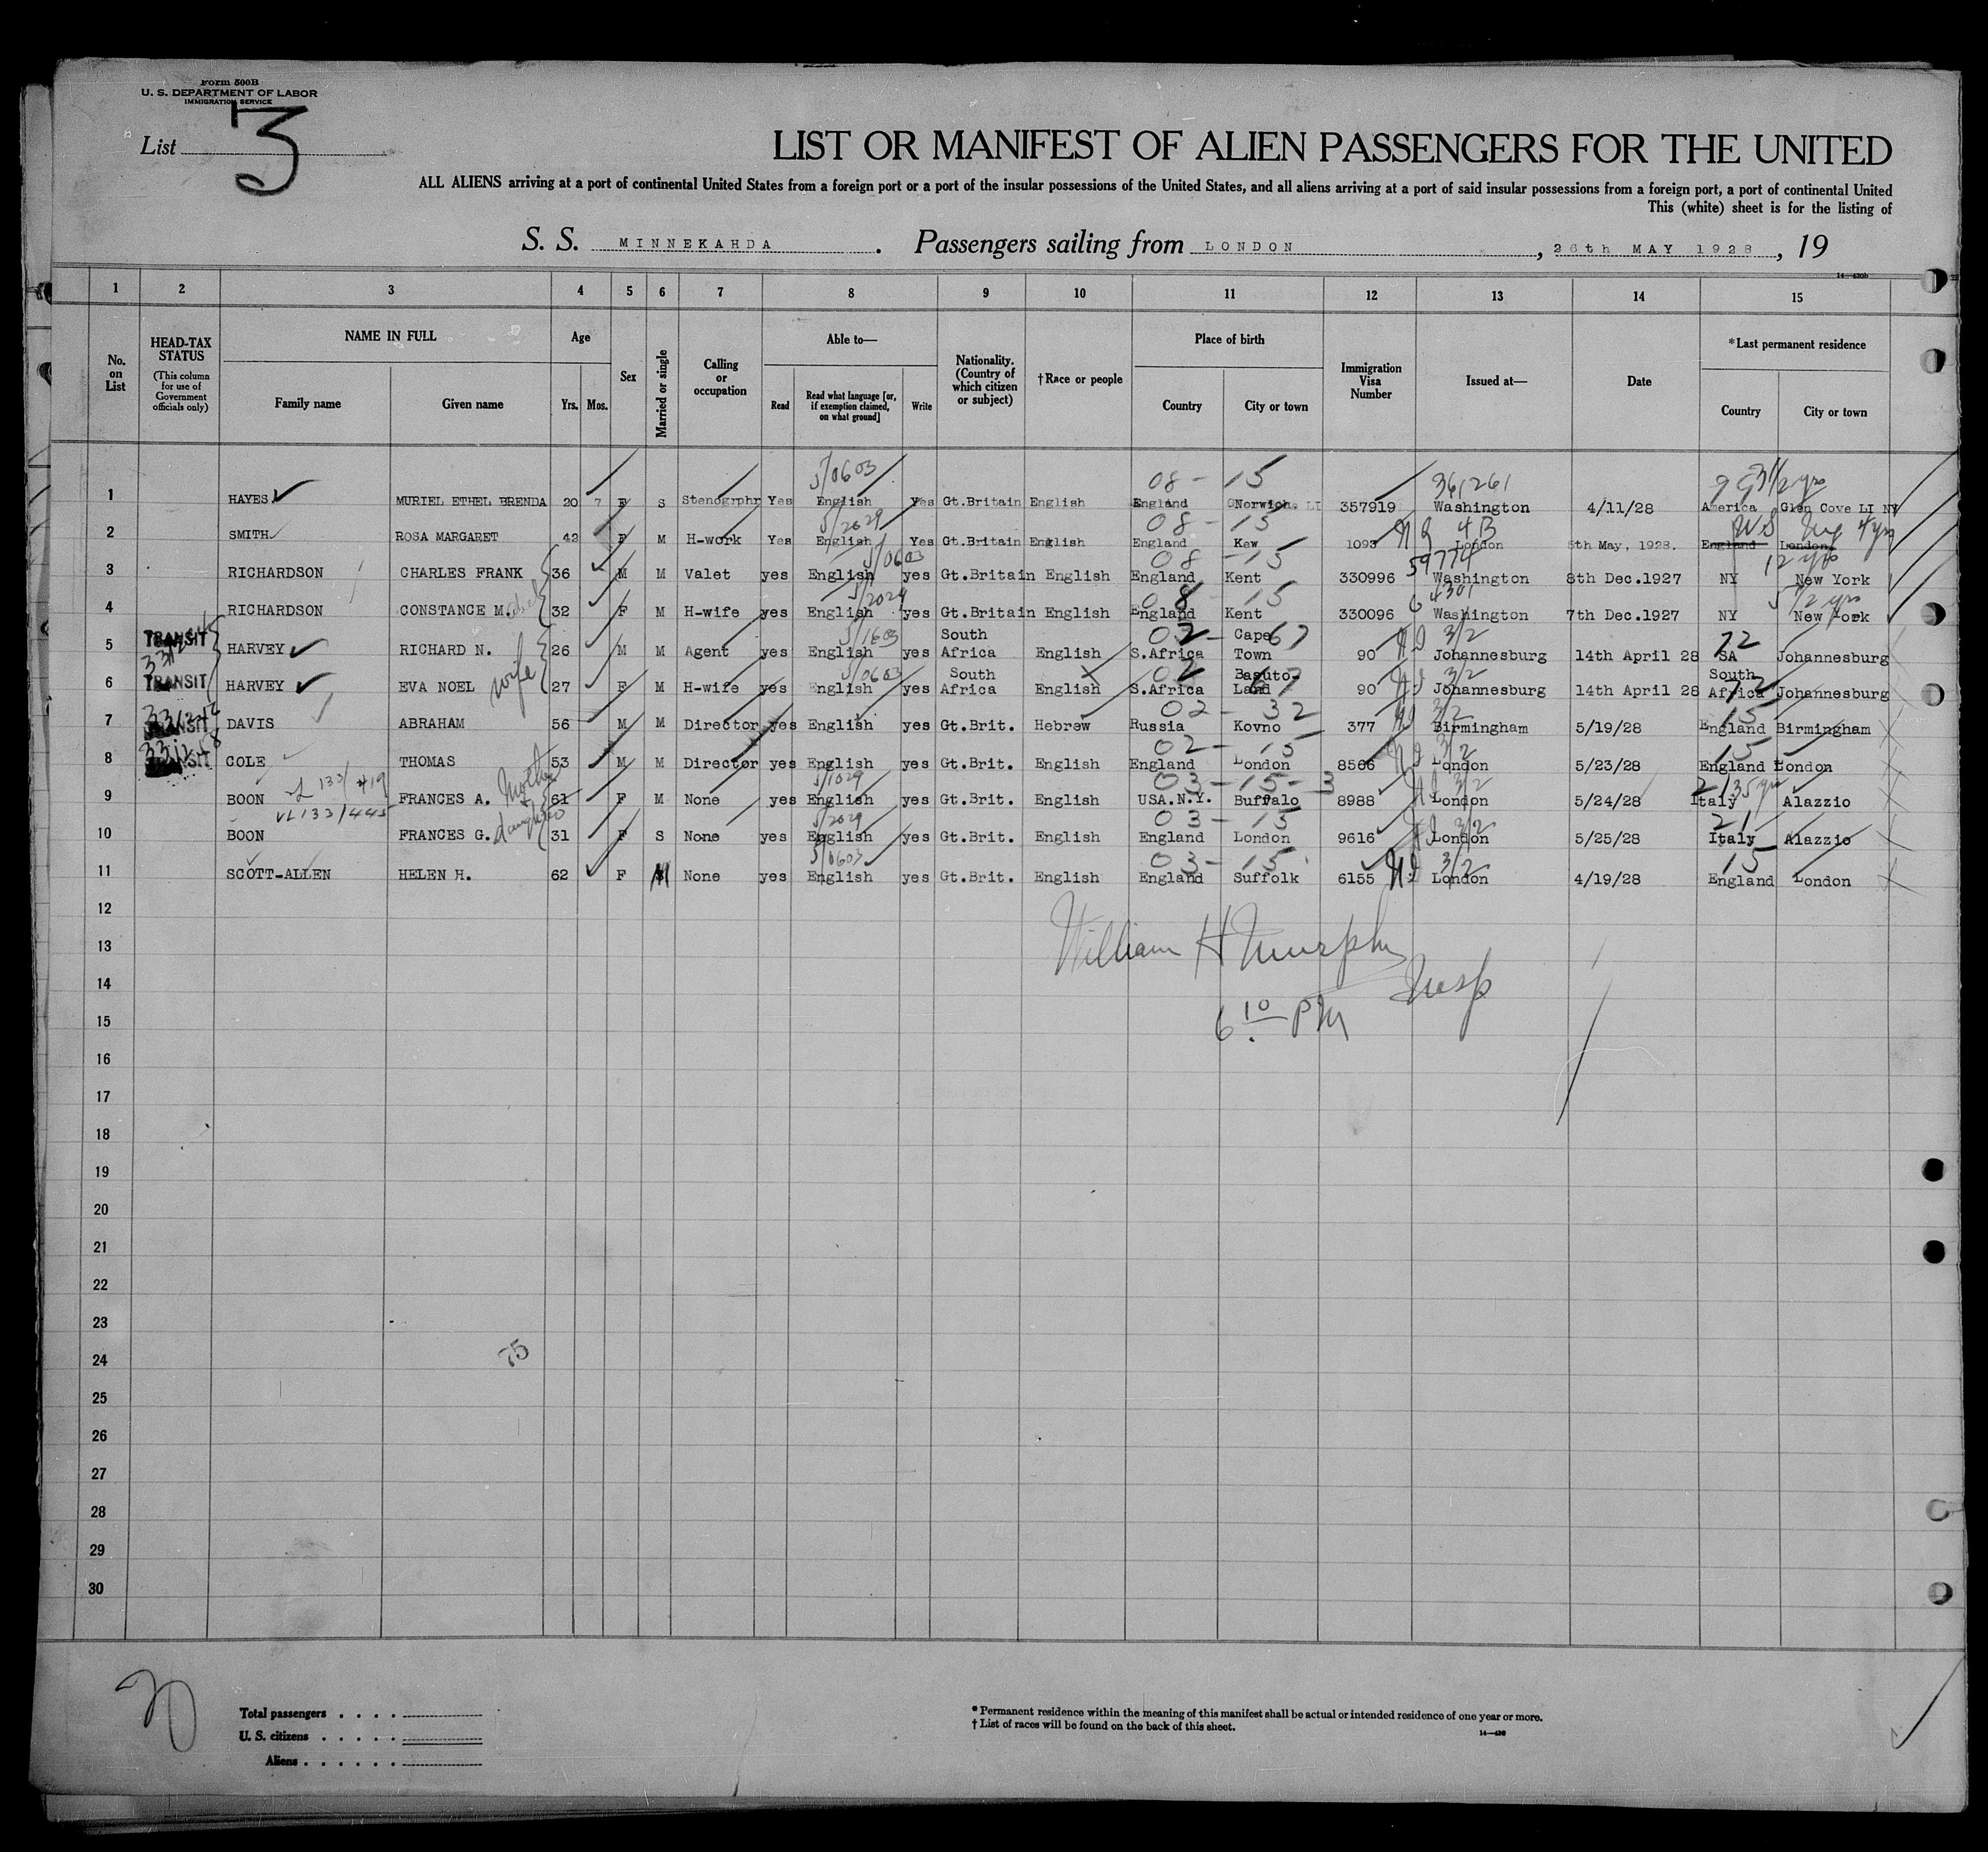 Form 500B
U. S. DEPARTMENT OF LABOR
IMMIGRATION SERVICE
List 3
LIST OR MANIFEST OF ALIEN PASSENGERS FOR THE UNITED
ALL ALIENS arriving at a port of continental United States from a foreign port or a port of the insular possessions of the United States, and all aliens arriving at a port of said insular possessions from a foreign port, a port of continental United
This (white) sheet is for the listing of
S. S. MINNEKAHDA. Passengers sailing from LONDON, 26th MAY 1928, 19
1 2 3 4 5 6 7 8 9 10 11 12 13 14 15
No. on List
HEAD-TAX STATUS (This column for use of Government officials only)
NAME IN FULL
Family name
Given name
Age
Yrs. Mos.
Sex
Married or single
Calling or occupation
Able to—
Read
Read what language [or, if exemption claimed, on what ground]
Write
Nationality. (Country of which citizen or subject)
†Race or people
Place of birth
Country
City or town
Immigration Visa Number
Issued at—
Date
*Last permanent residence
Country
City or town
5/0603 08 - 15 361261 3 1/2 yrs
1 HAYES MURIEL ETHEL BRENDA 20 7 F S Stenogrphr Yes English Yes Gt.Britain English England Norwich 357919 Washington 4/11/28 America Glen Cove LI NY
5/2029 08 - 15 4B 4 yrs
2 SMITH ROSA MARGARET 42 F M H-work Yes English Yes Gt.Britain English England Kew 1093 London 5th May, 1928. England London
5/0603 08 - 15 59774 12 yrs
3 RICHARDSON CHARLES FRANK 36 M M Valet yes English yes Gt.Britain English England Kent 330996 Washington 8th Dec.1927 NY New York
5/2029 08 - 15 5 1/2 yrs
4 RICHARDSON CONSTANCE M. 32 F M H-wife yes English yes Gt.Britain English England Kent 330096 Washington 7th Dec.1927 NY New York
5/1603 02 - 67 3/2 72
5 TRANSIT HARVEY RICHARD N. 26 M M Agent yes English yes South Africa English S.Africa Cape Town 90 Johannesburg 14th April 28 SA Johannesburg
5/0603 02 67 3/2 72
6 TRANSIT HARVEY EVA NOEL wife 27 F M H-wife yes English yes South Africa English S.Africa Basuto-Land 90 Johannesburg 14th April 28 South Africa Johannesburg
02 - 32 3/2 15
7 TRANSIT DAVIS ABRAHAM 56 M M Director yes English yes Gt.Brit. Hebrew Russia Kovno 377 Birmingham 5/19/28 England Birmingham
02 - 15 3/2 15
8 TRANSIT COLE THOMAS 53 M M Director yes English yes Gt.Brit. English England London 8566 London 5/23/28 England London
5/1029 03 - 15 - 3 3/2 21
9 BOON FRANCES A. Mother 61 F M None yes English yes Gt.Brit. English USA.N.Y. Buffalo 8988 London 5/24/28 Italy Alazzio
5/2029 03 - 15 3/2 21
10 BOON FRANCES G. daughter 31 F S None yes English yes Gt.Brit. English England London 9616 London 5/25/28 Italy Alazzio
5/0603 03 - 15 3/2 15
11 SCOTT-ALLEN HELEN H. 62 F M None yes English yes Gt.Brit. English England Suffolk 6155 London 4/19/28 England London
12
13 William H Murphy
14 Insp
15 6 10 PM
16
17
18
19
20
21
22
23
24 75
25
26
27
28
29
30
Total passengers . . . .
U. S. citizens . . . . .
Aliens . . . . . .
* Permanent residence within the meaning of this manifest shall be actual or intended residence of one year or more.
† List of races will be found on the back of this sheet.